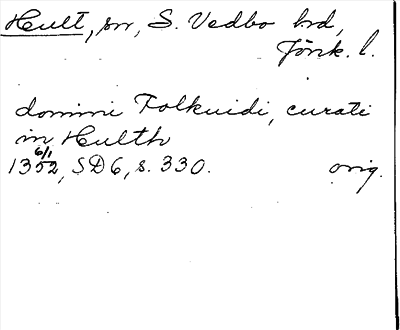 Hult, sn, S. Vedbo hd,
Jönk. l.
domini Folkuidi, curati
in Hulth
6/1
1352, SD6, s. 330. orig.